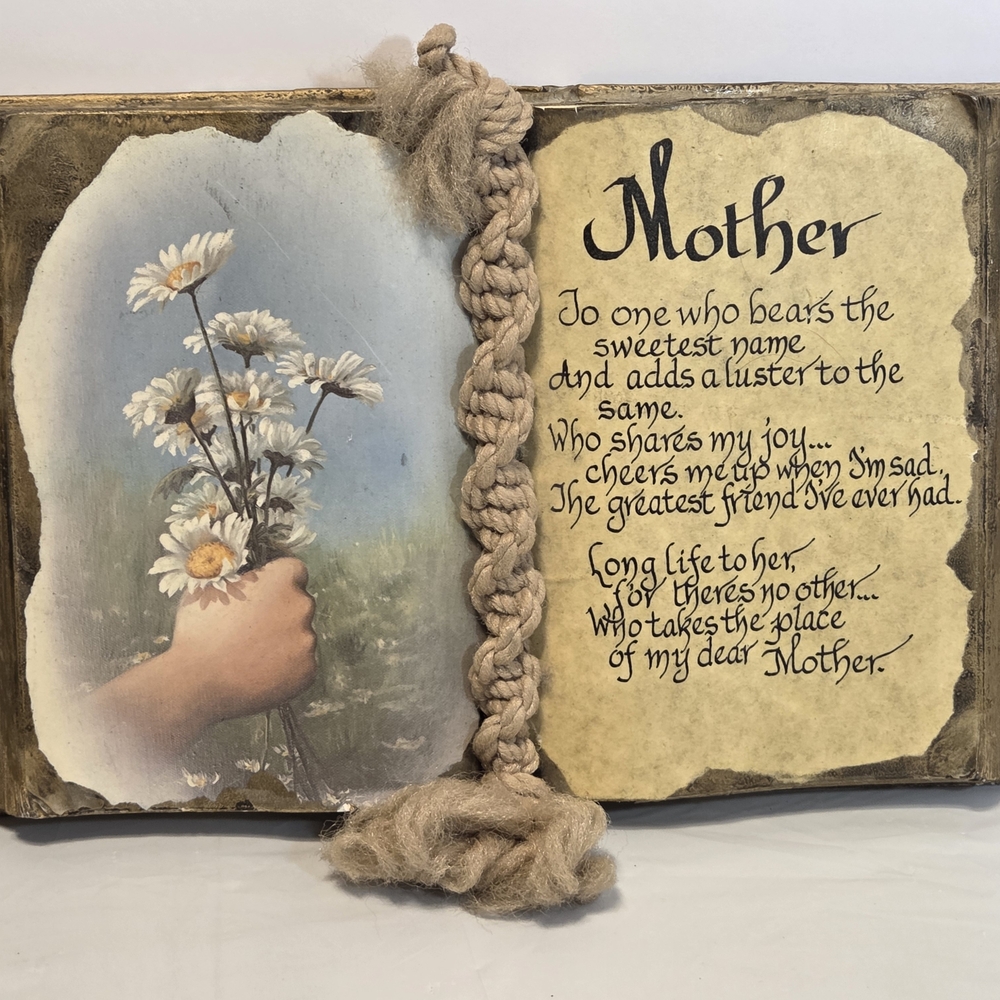 Mother
To one who bears the
sweetest name
And adds a luster to the
same.
Who shares my joy...
cheers me up when I'm sad.
The greatest friend I've ever had.
Long life to her,
for there's no other...
Who takes the place
of my dear Mother.